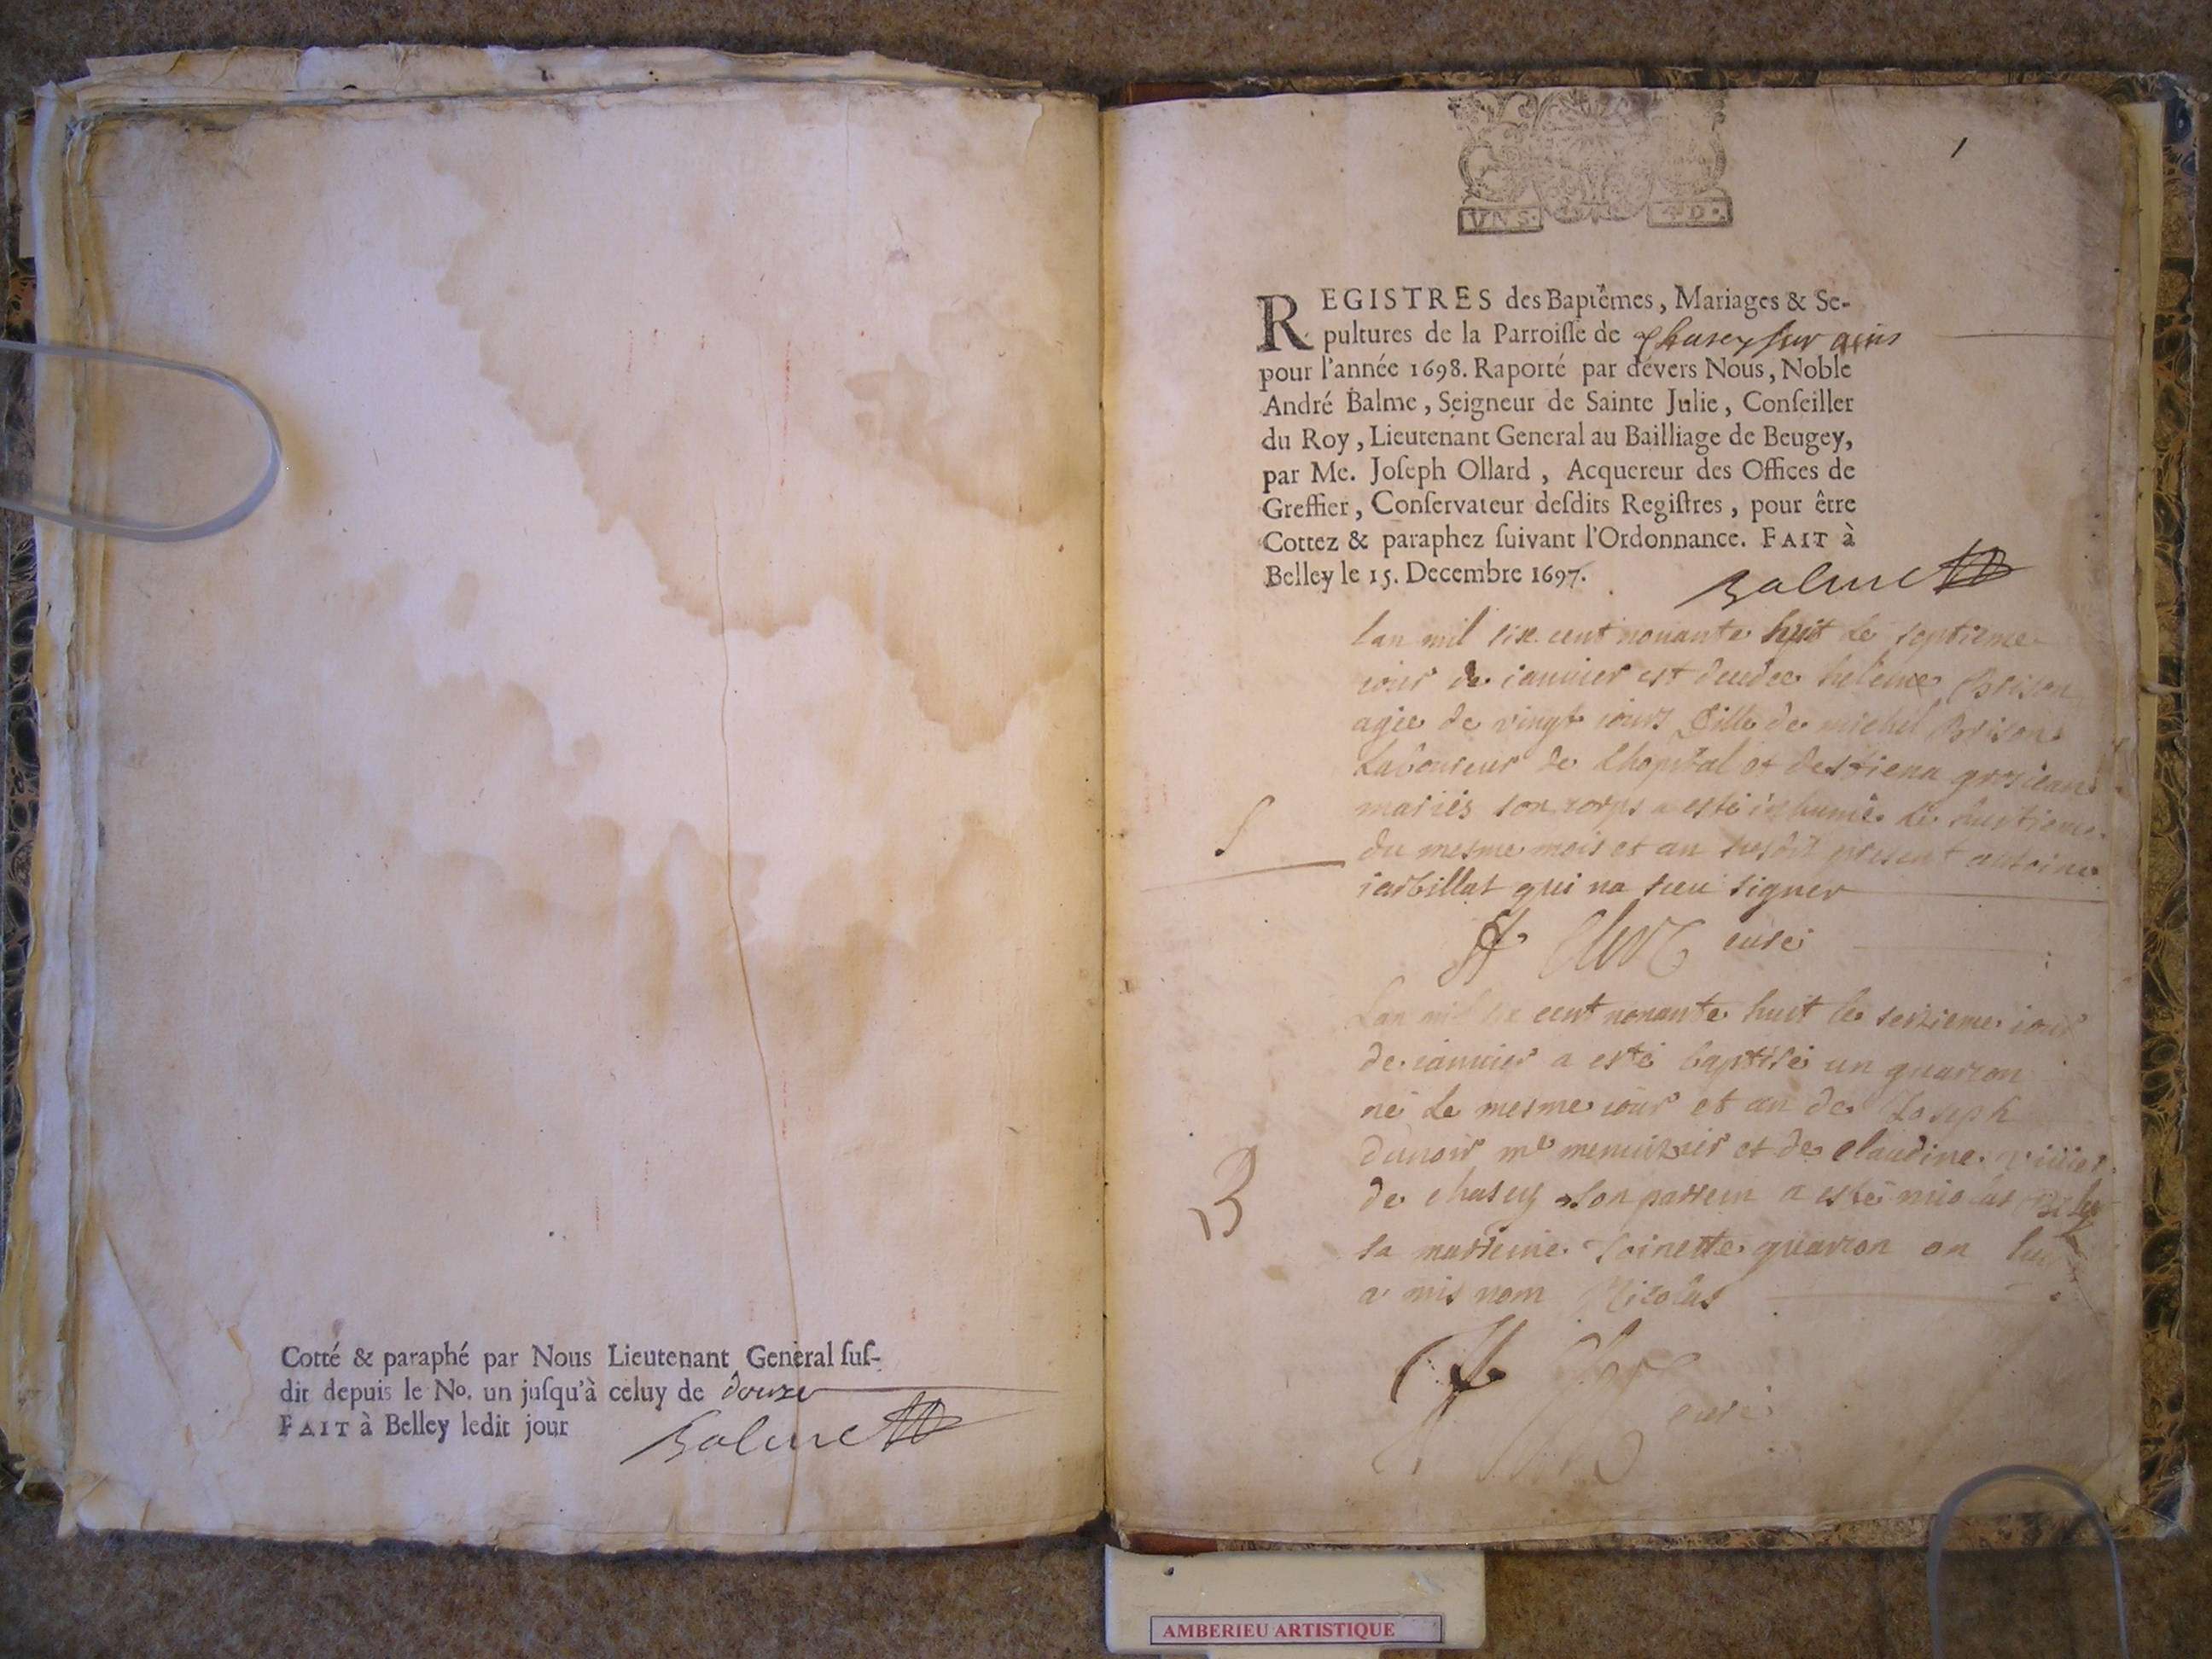 Cotté & paraphé par Nous Lieutenant General ſuſ-
dit depuis le No. un juſqu'à celuy de douze
FAIT à Belley ledit jour
Balme
1
VN S. 4 D.
REGISTRES des Baptêmes, Mariages & Se-
pultures de la Parroiſſe de Chasey sur ains
pour l'année 1698. Raporté par devers Nous, Noble
André Balme, Seigneur de Sainte Julie, Conſeiller
du Roy, Lieutenant General au Bailliage de Beugey,
par Me. Joſeph Ollard, Acquereur des Offices de
Greffier, Conſervateur deſdits Regiſtres, pour être
Cottez & paraphez ſuivant l'Ordonnance. FAIT à
Belley le 15. Decembre 1697.
Balme
lan mil six cent nonante huit le septieme
iour de ianuier est decedee heleine Brison
agee de vingt iours fille de michel Brison
Laboureur de lhopital et destiena grosiean
mariés son corps a esté inhumé le huitieme
du mesme mois et an susdit present antoine
iarbillat qui na sceu signer
S
curé
Lan mil six cent nonante huit le seizieme iour
de ianuier a esté baptisé un guarcon
né le mesme iour et an de Ioseph
dunoir me menuizier et de claudine
B
de chasey son parrein a esté nicolas
sa marreine toinette guarcon on luy
a mis nom Nicolas
curé
AMBERIEU ARTISTIQUE